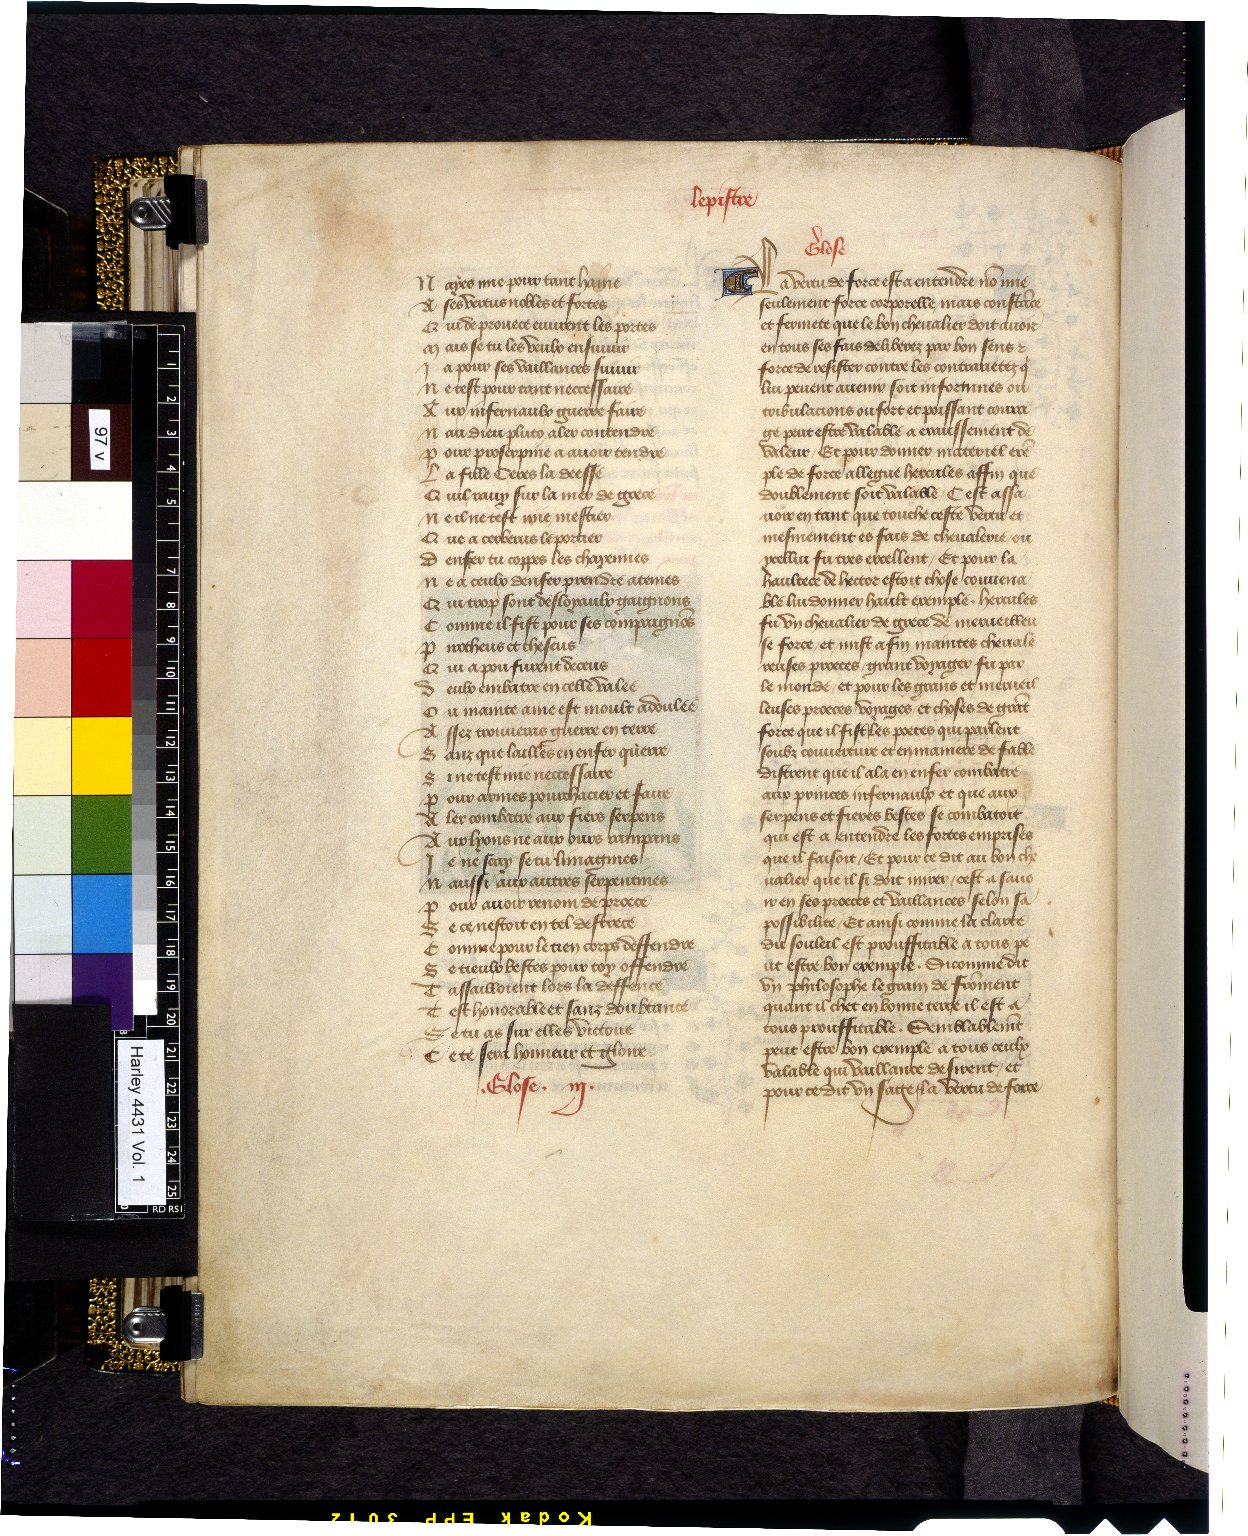 lepistre
N ayes mie pour tant hayne
A ses vertus nobles et fortes
Q ui de prouece euurent les portes
M ais se tu les veulx ensuiuir
J a pour ses vaillances suiuir
N e test pour tant neccessaire
A ux infernaulx guerre faire
N au dieu pluto aler contendre
P our proserpine a auoir tendre
L a fille Ceres la deesse
Q uil rauy sur la mer de grece
N e il ne test mie mestier
Q ue a cerberus le portier
D enfer tu coppes les chayennes
N e a ceulx denfer prendre ataines
Q ui trop sont desloyaulx gaignons
C omme il fist pour ses compaignõs
P irotheus et theseus
Q ui a pou furent deceus
D eulx embatre en celle valee
O u mainte ame est moult adoulee
A ssez trouueras guerre en terre
S anz que lailles en enfer querre
S i ne test mie neccessaire
P our armes pourchacier et faire
A ler combatre aux fiers serpens
A ux lyons ne aux ours rampans
J e ne scay se tu limagines
N aussi aux autres serpentines
P our auoir renom de proece
S e ce nestoit en tel destrece
C omme pour le tien corps deffendre
S e tieulx bestes pour toy offendre
T assailloient lors la deffence
T est honorable et sanz doubtance
S e tu as sur elles victoire
C e te sera honneur et gloire
.Glose. iij.
Glose
La vertu de force est a entendre nõ mie
seulement force corporelle mais constãce
et fermete que le bon cheualier doit auoir
en tous ses fais deliberez par bon sens &
force de resister contre les contrarietez q̃
lui peuent auenir soit infortunes ou
tribulacions ou fort et poissant coura
ge peut estre valable a exaussement de
valeur / Et pour donner materiel exẽ
ple de force allegue hercules affin que
doublement soit valable / Cest assa
uoir en tant que touche ceste vertu et
mesmement es fais de cheualerie / ou
ycellui fu tres excellent / Et pour la
haultece de hector estoit chose conuena
ble lui donner hault exemple. hercules
fu vn cheualier de grece de merueilleu
se force / et mist a fin maintes cheuale
reuses proeces / grant voyager fu par
le monde / et pour les grans et merueil
leuses proeces voyages et choses de grãt
force que il fist les poetes qui parlent
soubz couuerture et en maniere de fable
distrent que il ala en enfer combatre
aux princes infernaulx et que aux
serpens et fieres bestes se combatoit
qui est a entendre les fortes emprises
que il faisoit / Et pour ce dit au bon che
ualier que il si doit mirer / cest a sauo
ir en ses proeces et vaillances selon sa
possibilite / Et ainsi comme la clarte
du souleil est prouffitable a tous pe
ut estre bon exemple. Si comme dit
vn philosophe le grain de froment
quant il chet en bonne terre il est a
tous prouffitable. Semblablemẽt
peut estre bon exemple a tous ceulx
valable qui vaillance desirent / et
pour ce dit vn sage / la vertu de force
97 v
Harley 4431 Vol. 1
1
2
3
4
5
6
7
8
9
10
11
12
13
14
15
16
17
18
19
20
21
22
23
24
25
RD RSI
Kodak EPP 3012